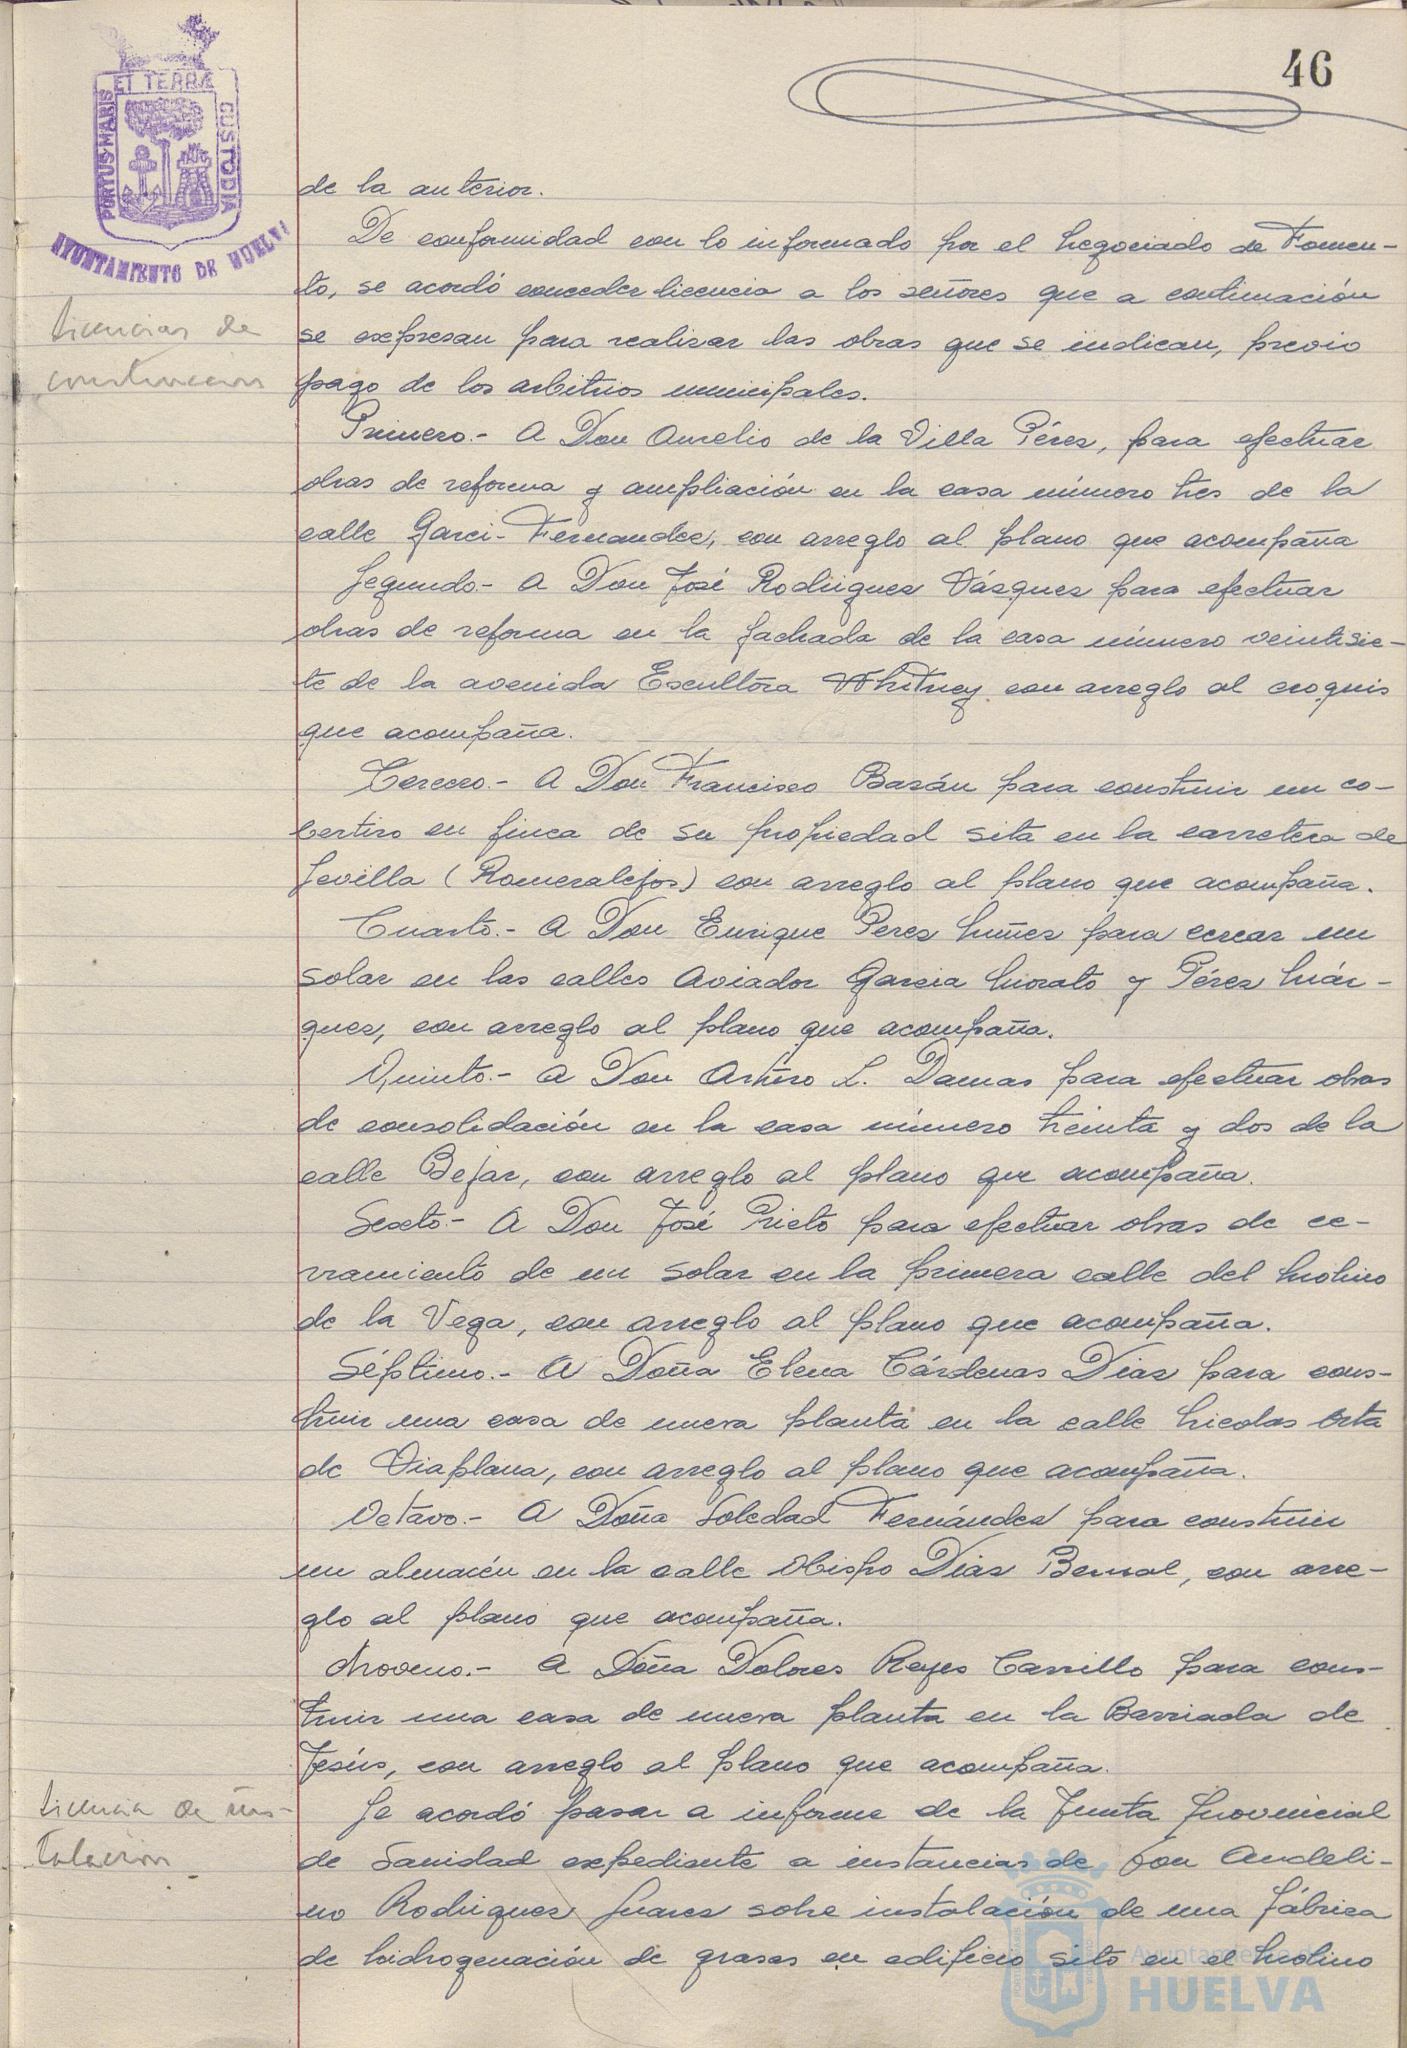 46
ET TERRÆ
PORTUS MARIS
CUSTODIA
AYUNTAMIENTO DE HUELVA
de la anterior.
De conformidad con lo informado por el Negociado de Fomen-
to, se acordó conceder licencia a los señores que a continuación
Licencias de
se expresan para realizar las obras que se indican, previo
construcción
pago de los arbitrios municipales.
Primero.- A Don Aurelio de la Villa Pérez, para efectuar
obras de reforma y ampliación en la casa número tres de la
calle Garci-Fernandez, con arreglo al plano que acompaña
Segundo.- A Don José Rodriguez Vásquez para efectuar
obras de reforma en la fachada de la casa número veintisie-
te de la avenida Escultora Whitney con arreglo al croquis
que acompaña.
Tercero.- A Don Francisco Bazán para construir un co-
bertizo en finca de su propiedad sita en la carretera de
Sevilla (Romeralejos) con arreglo al plano que acompaña.
Cuarto.- A Don Enrique Perez Nuñez para cercar un
solar en las calles Aviador Garcia Morato y Pérez Már-
quez, con arreglo al plano que acompaña.
Quinto.- A Don Arturo L. Damas para efectuar obras
de consolidación en la casa número treinta y dos de la
calle Bejar, con arreglo al plano que acompaña.
Sexto.- A Don José Prieto para efectuar obras de ce-
rramiento de un solar en la primera calle del Molino
de la Vega, con arreglo al plano que acompaña.
Séptimo.- A Doña Elena Cárdenas Diaz para cons-
truir una casa de nueva planta en la calle Nicolas Orta
de Viaplana, con arreglo al plano que acompaña.
Octavo.- A Doña Soledad Fernández para construir
un almacén en la calle Obispo Diaz Bernal, con arre-
glo al plano que acompaña.
Noveno.- A Doña Dolores Reyes Carrillo para cons-
truir una casa de nueva planta en la Barriada de
Jesús, con arreglo al plano que acompaña.
Licencia de ins-
Se acordó pasar a informe de la Junta Provincial
talación
de Sanidad expediente a instancias de Don Andeli-
no Rodriguez Suarez sobre instalación de una fábrica
de hidrogenación de grasas en edificio sito en el Molino
Ayuntamiento de
HUELVA